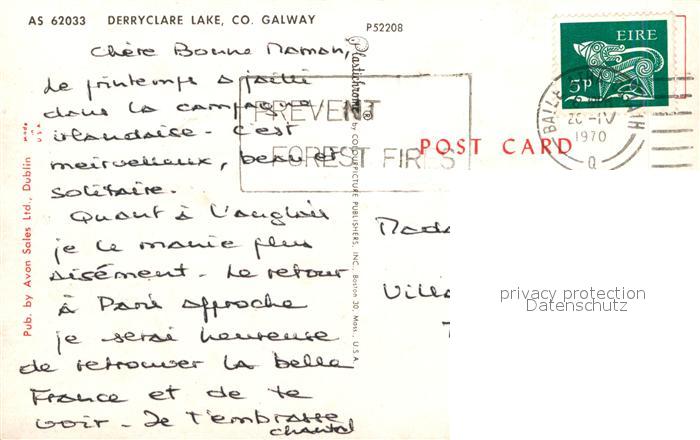 AS 62033 DERRYCLARE LAKE, CO. GALWAY
P52208
Chère Bonne Maman,
Le printemps a jailli
dans la campagne
irlandaise - c'est
merveilleux, beau et
solitaire.
Quant à l'anglais
je le manie plus
aisément - Le retour
à Paris approche
je serai heureuse
de retrouver la belle
France et de te
voir - Je t'embrasse
Chantal
Pub. by Avon Sales Ltd., Dublin
made in U.S.A.
Plastichrome® by COLOURPICTURE PUBLISHERS, INC., Boston 30, Mass., U.S.A.
PREVENT
FOREST FIRES
POST CARD
EIRE
5P
BAILE
20-IV
1970
a
Mada
Villa
privacy protection
Datenschutz